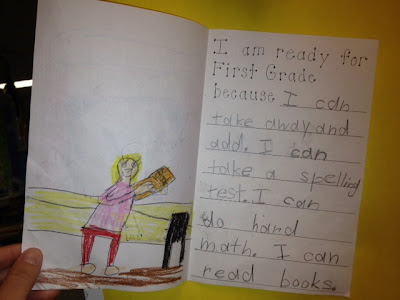 I am ready for
First Grade
because I can
take away and
add. I can
take a spelling
test. I can
do hand
math. I can
read books.